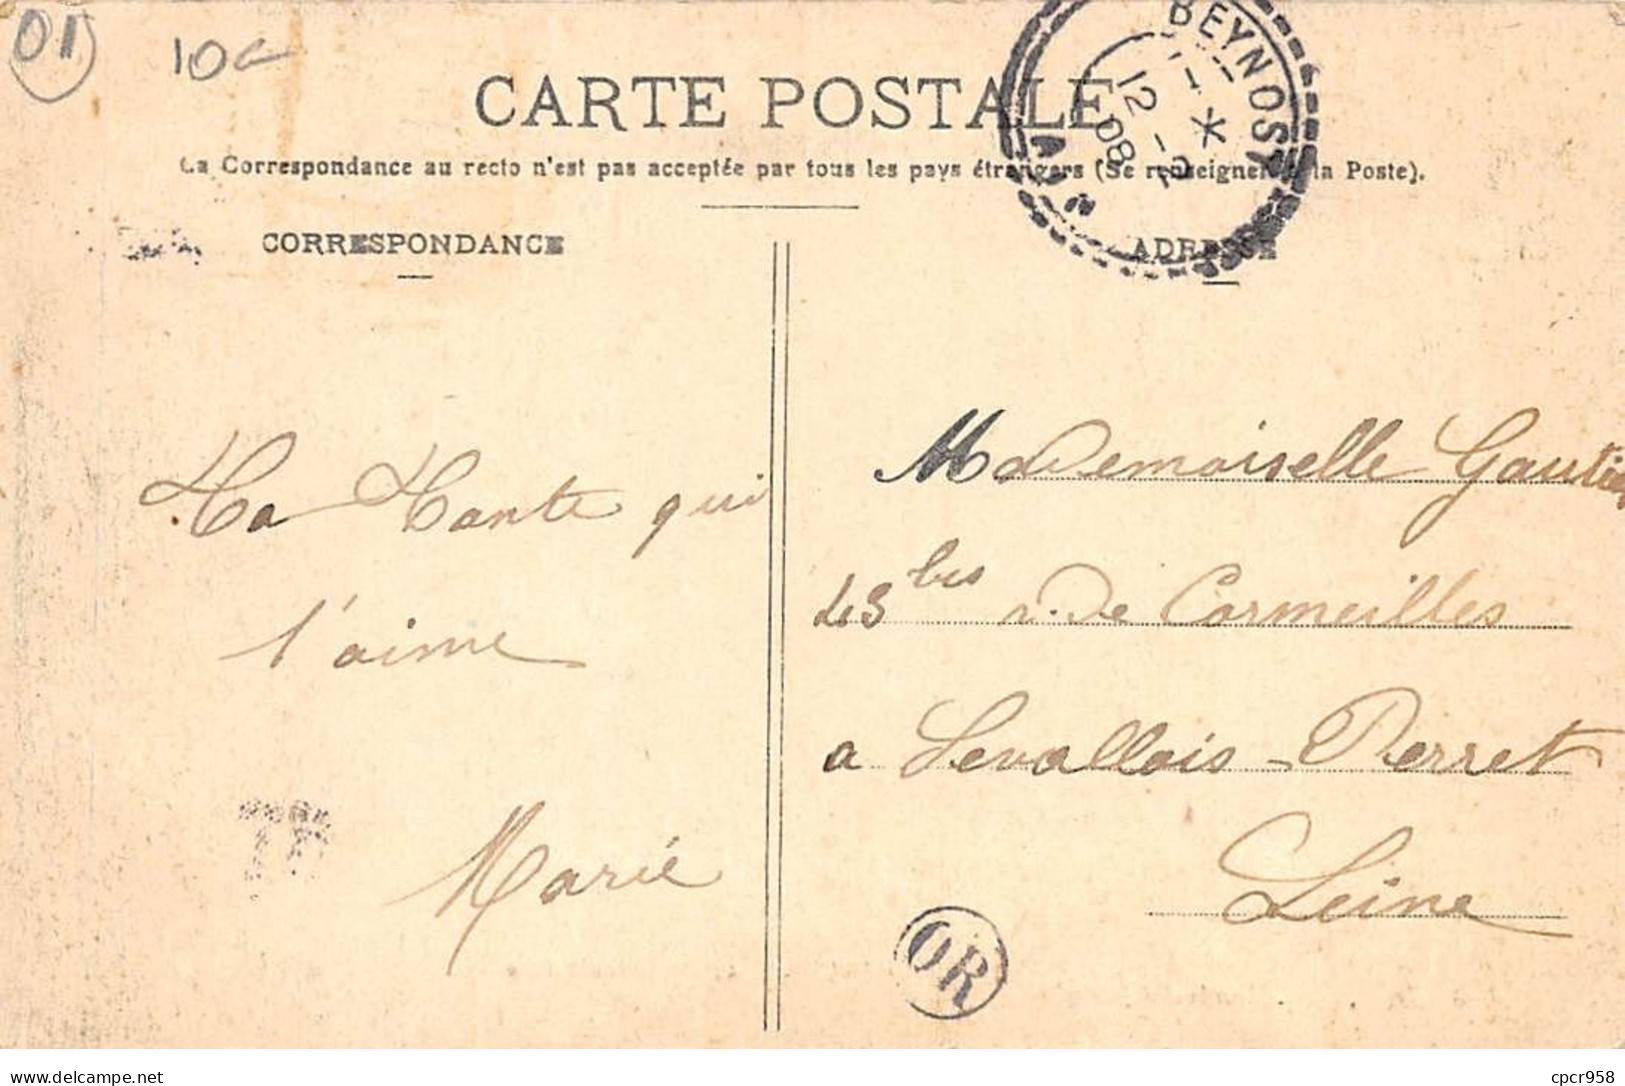 01
10€
CARTE POSTALE
La Correspondance au recto n'est pas acceptée par tous les pays étrangers (Se renseigner à la Poste).
BEYNOST
12 - 2
08
AIN
CORRESPONDANCE
ADRESSE
Ta Tante qui
t'aime
Marie
Mademoiselle Gautier
43 bis r. De Cormeilles
a Levallois-Perret
Seine
OR
cpcr958